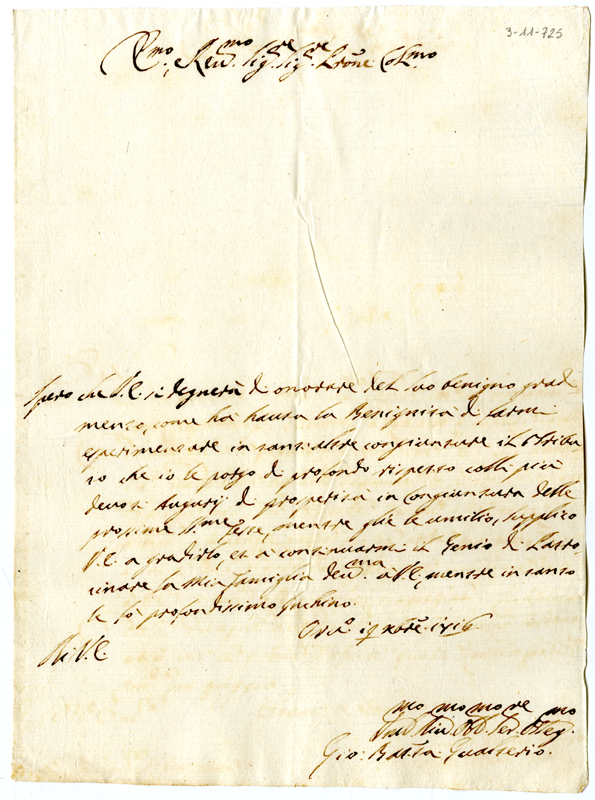 3-11-725
Emo, Revmo Sigre Sigre Prone Colmo
Spero che V.E. si degnerà di onorare del suo benigno gradi-
mento, come ha hauta la Benignità di farmi
esperimentare in tant'altre congiunture il Tribu
to che io le porgo di profondo rispetto colli più
devoti Augurij di prosperità in congiuntura delle
prossime Sme feste, mentre glie le umilio, supplico
V.E. a gradirlo, et a continuarmi il Genio di Patro-
cinare la mia famiglia devma a V.E., mentre in tanto
le fò profondissimo Inchino.
Orvto 19 Xbre 1716
Di V.E.
Obb. Ser. Obleg.
Gio: Batta Gualterio.